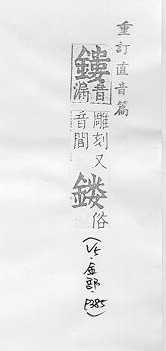 重訂直音篇
鏤
音漏
雕刻又
音閭
俗
(V5·金部·P385)